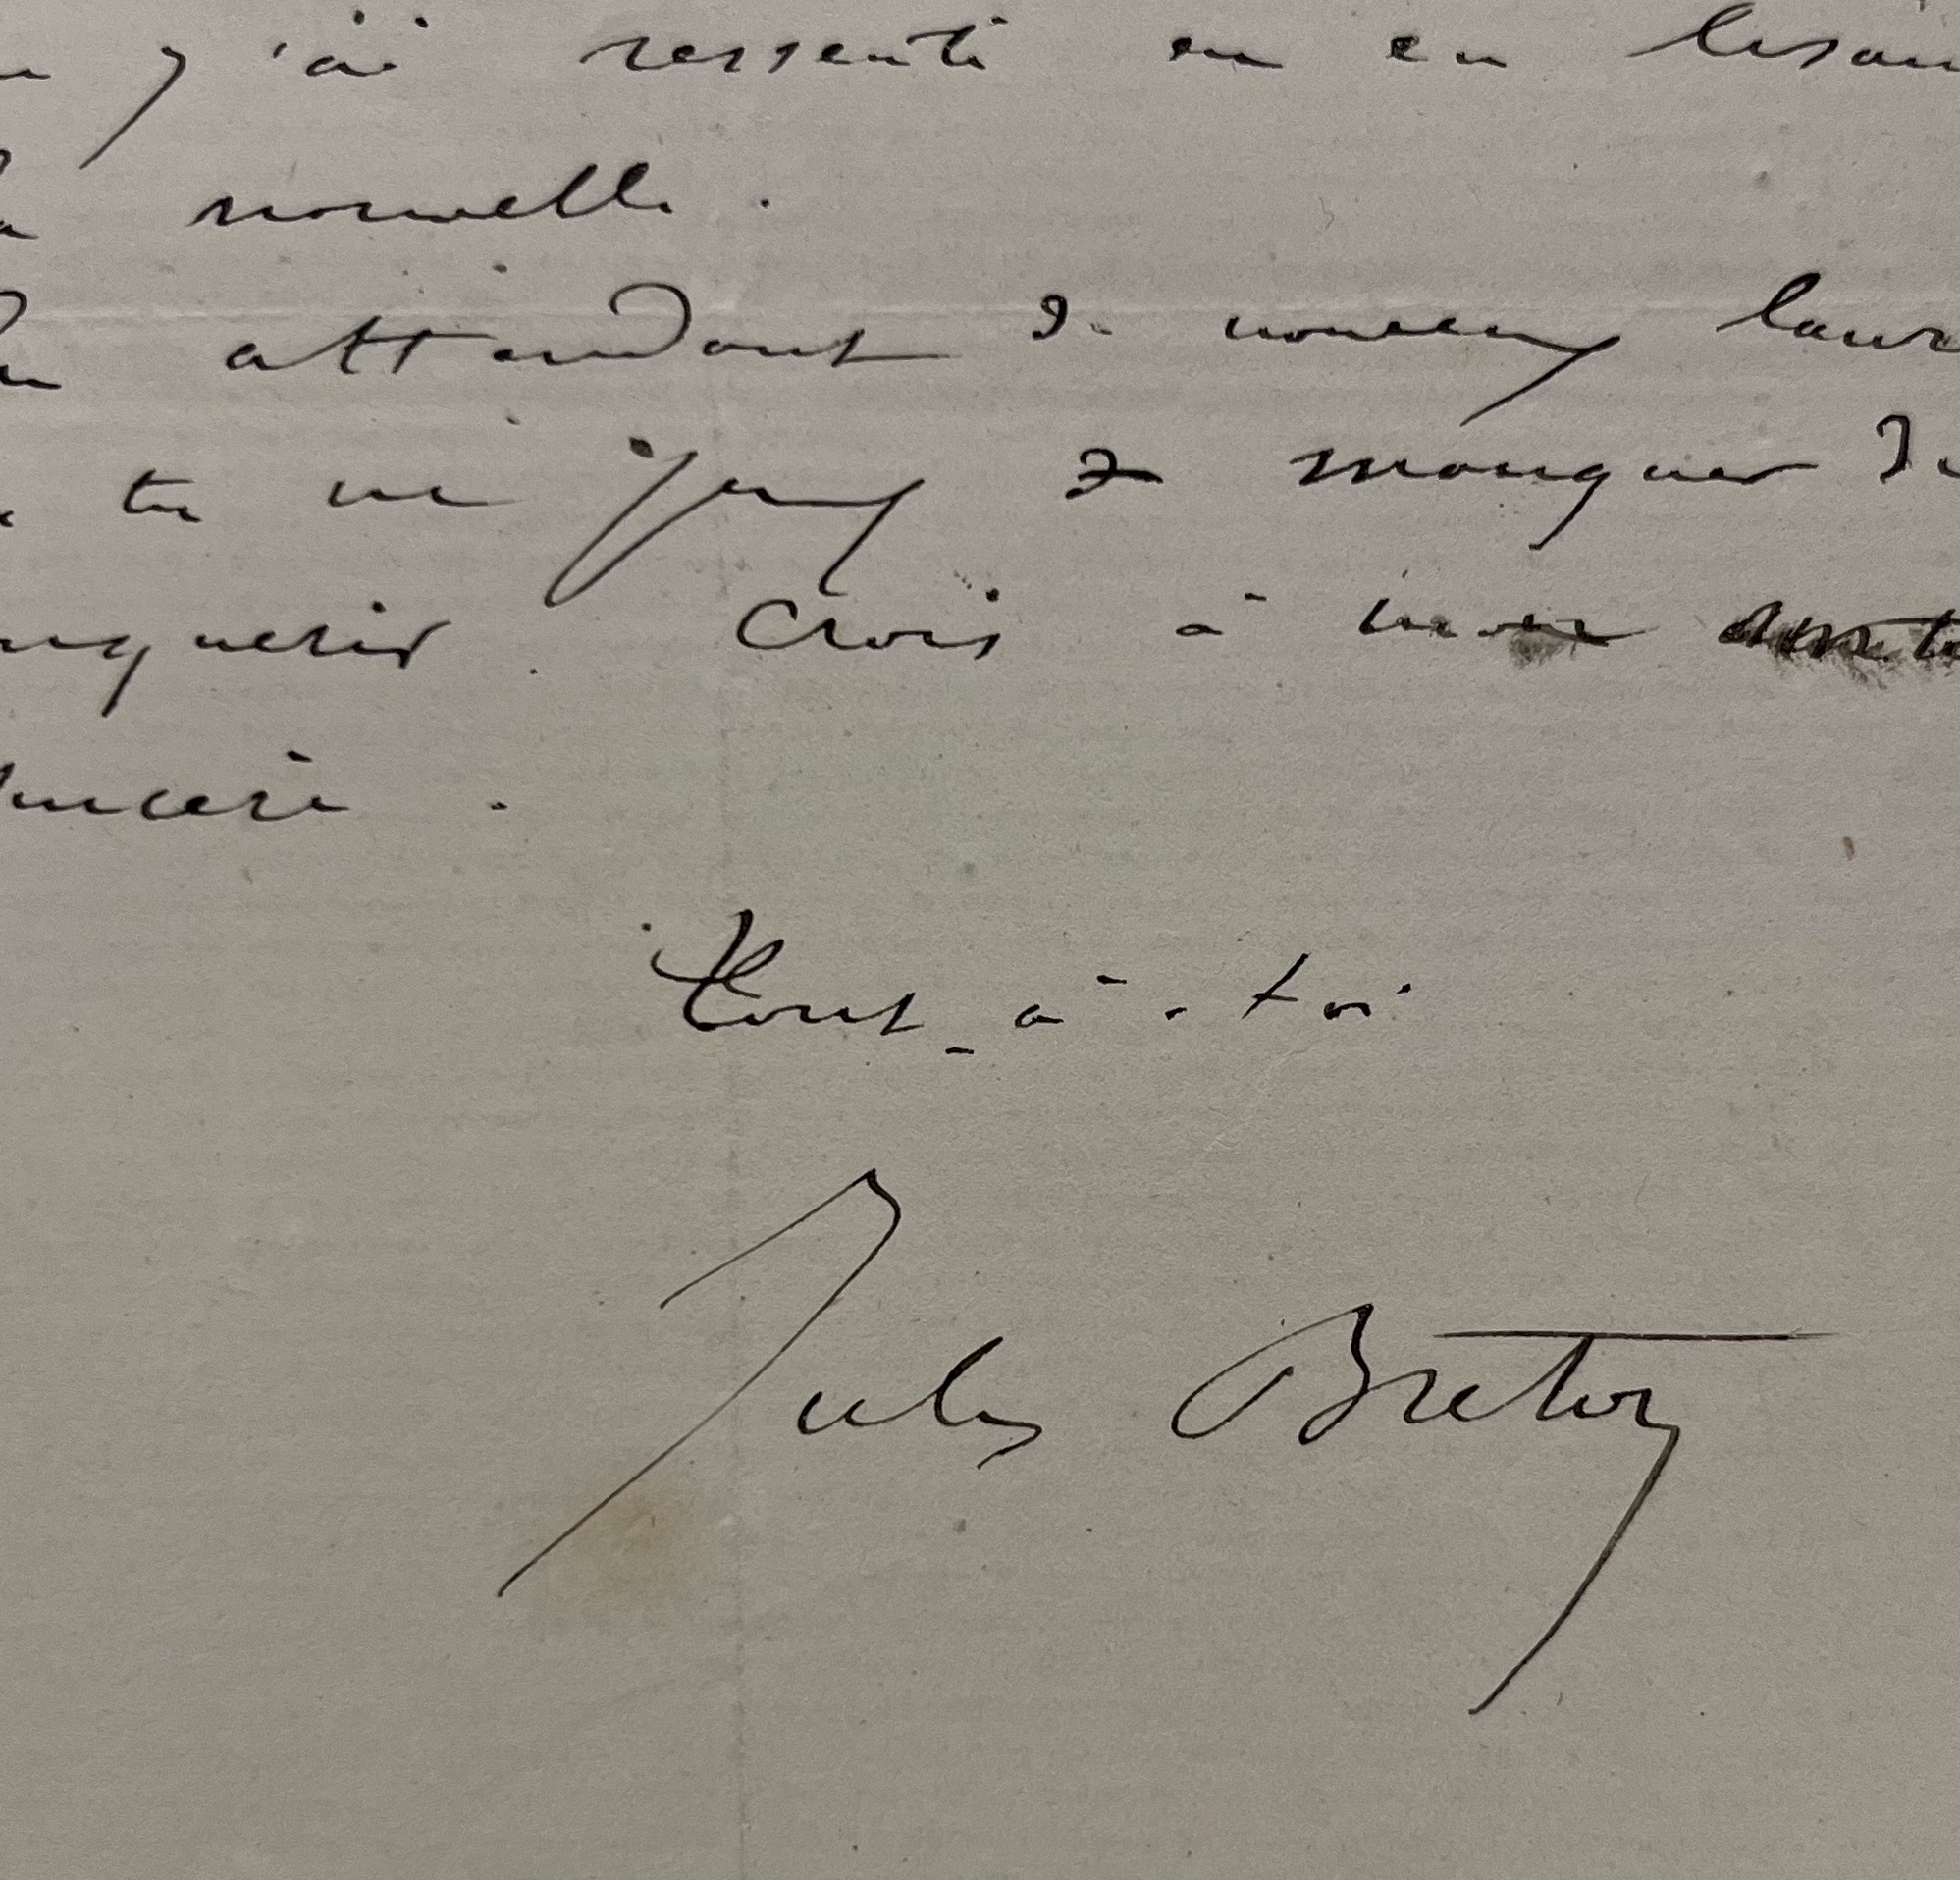 j'ai ressenti en en lisan
nouvelle.
attendant de nouveaux laur
tu ne peux de manquer de
nquerir. Crois à mon amit
sincère.
Tout-à-toi
Jules Breton